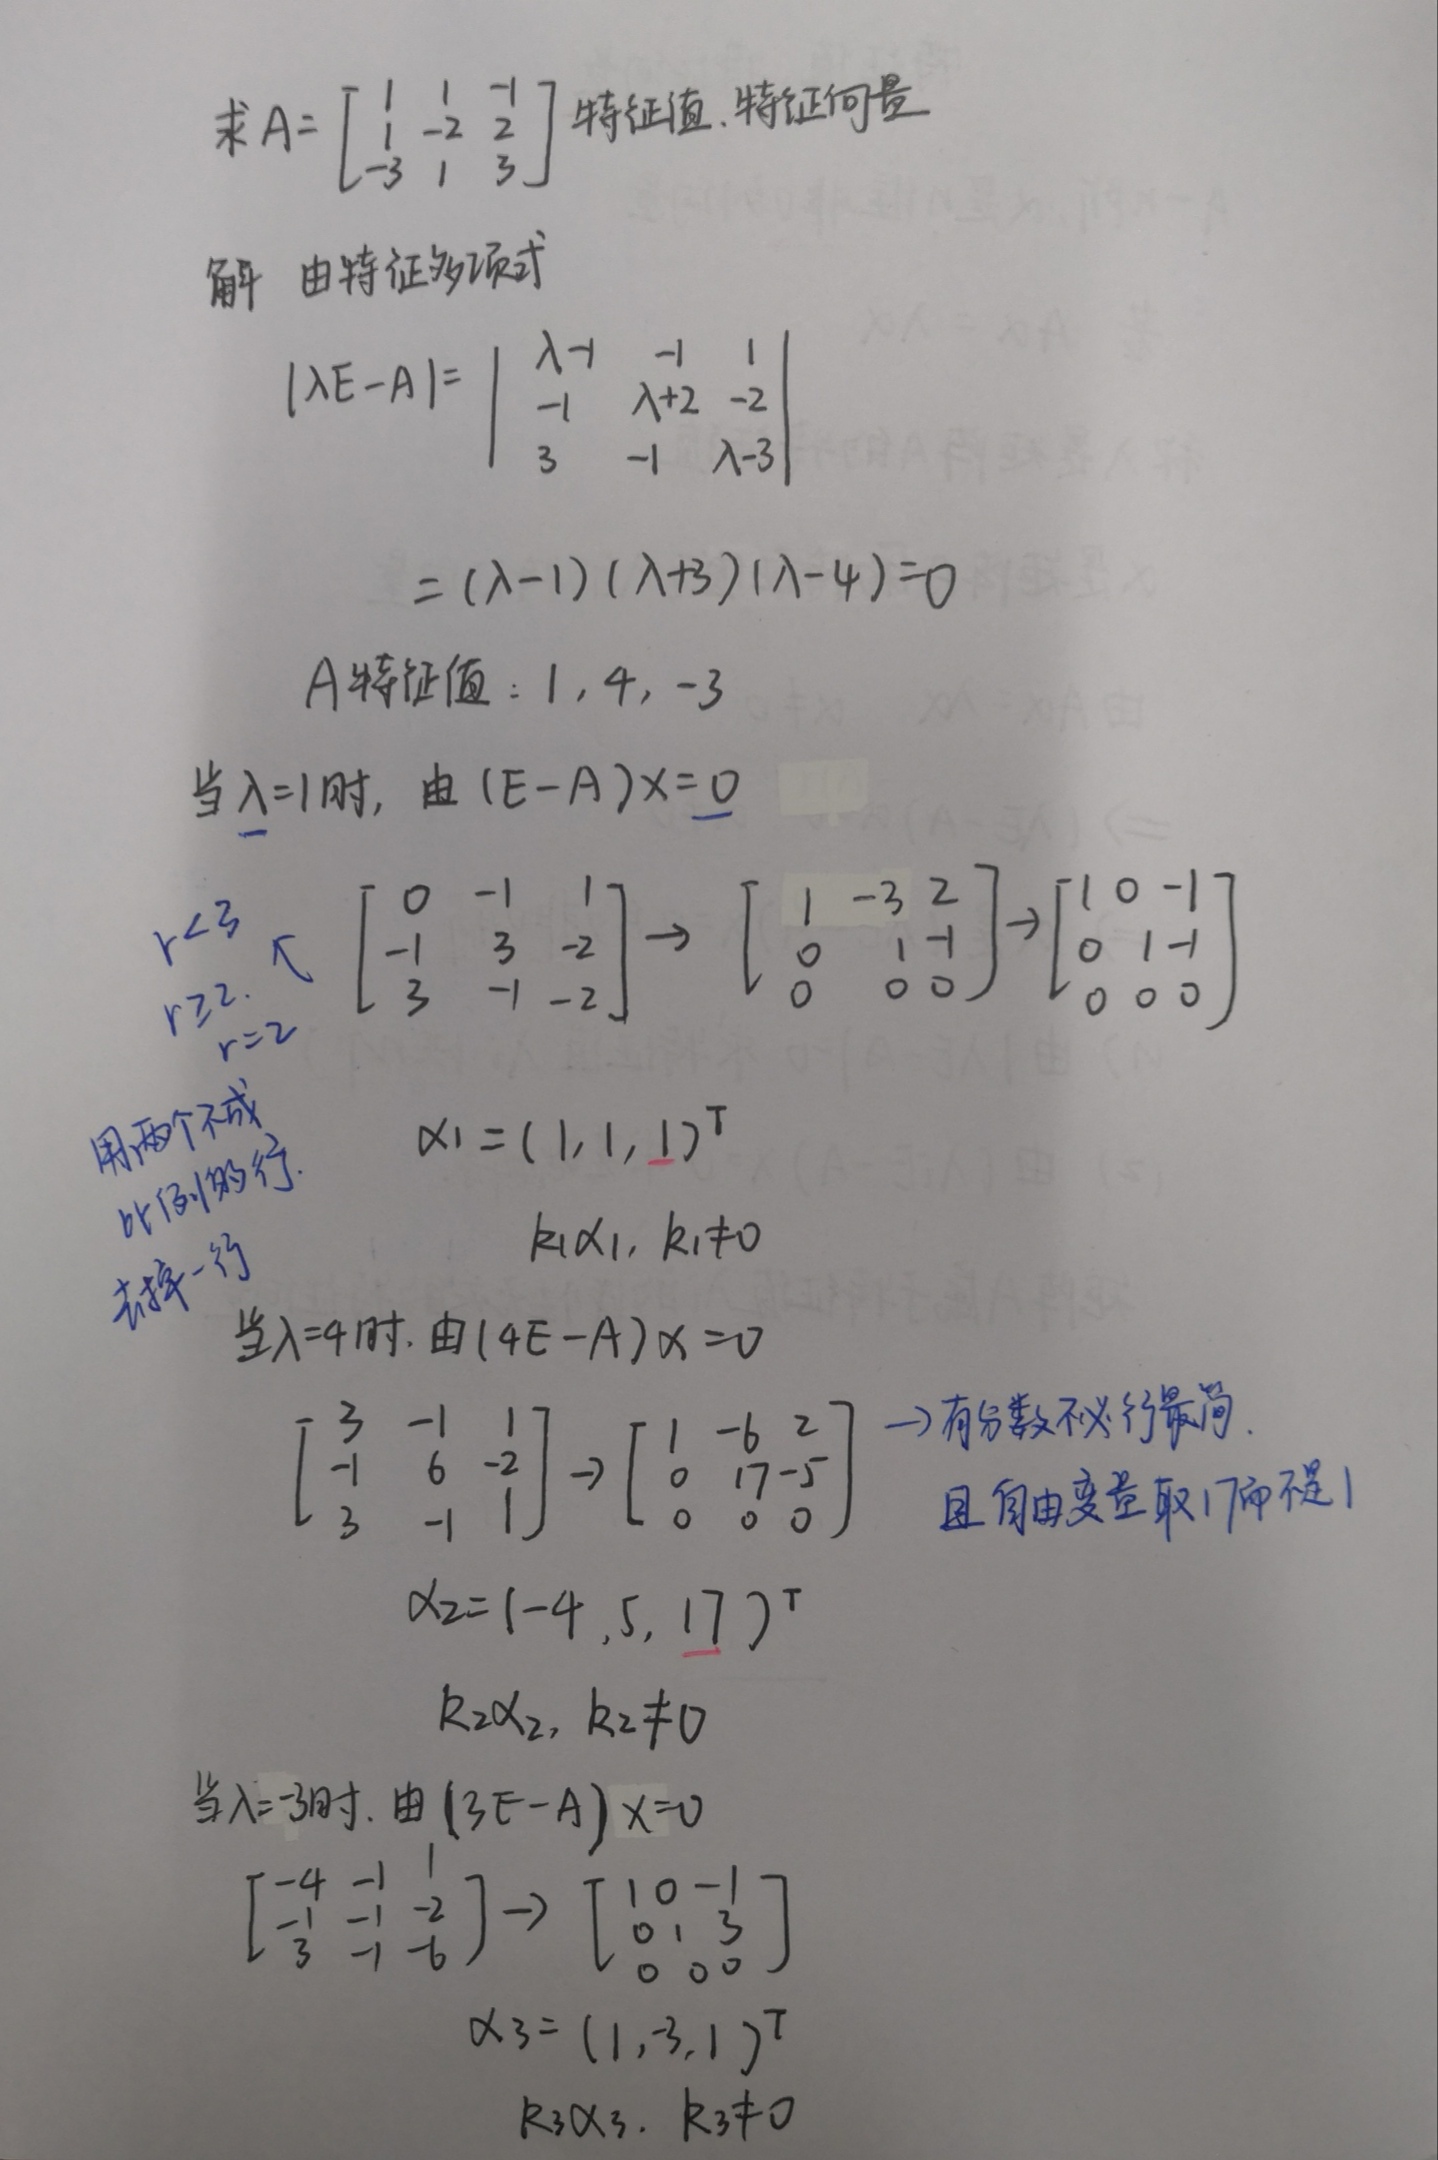 求A= [ 1 1 -1
1 -2 2
-3 1 3 ] 特征值.特征向量
解 由特征多项式
|λE-A|= | λ-1 -1 1
-1 λ+2 -2
3 -1 λ-3 |
=(λ-1)(λ+3)(λ-4)=0
A特征值:1,4,-3
当λ=1时,由(E-A)x=0
[ 0 -1 1
-1 3 -2
3 -1 -2 ] → [ 1 -3 2
0 1 -1
0 0 0 ] → [ 1 0 -1
0 1 -1
0 0 0 ]
r<3
r≥2.
r=2
用两个不成
比例的行.
去掉一行
α1=(1,1,1)ᵀ
k1α1, k1≠0
当λ=4时.由(4E-A)x=0
[ 3 -1 1
-1 6 -2
3 -1 1 ] → [ 1 -6 2
0 17 -5
0 0 0 ]
→有分数不必行最简.
且自由变量取17而不是1
α2=(-4,5,17)ᵀ
k2α2, k2≠0
当λ=-3时.由(3E-A)x=0
[ -4 -1 1
-1 -1 -2
3 -1 -6 ] → [ 1 0 -1
0 1 3
0 0 0 ]
α3=(1,-3,1)ᵀ
k3α3. k3≠0